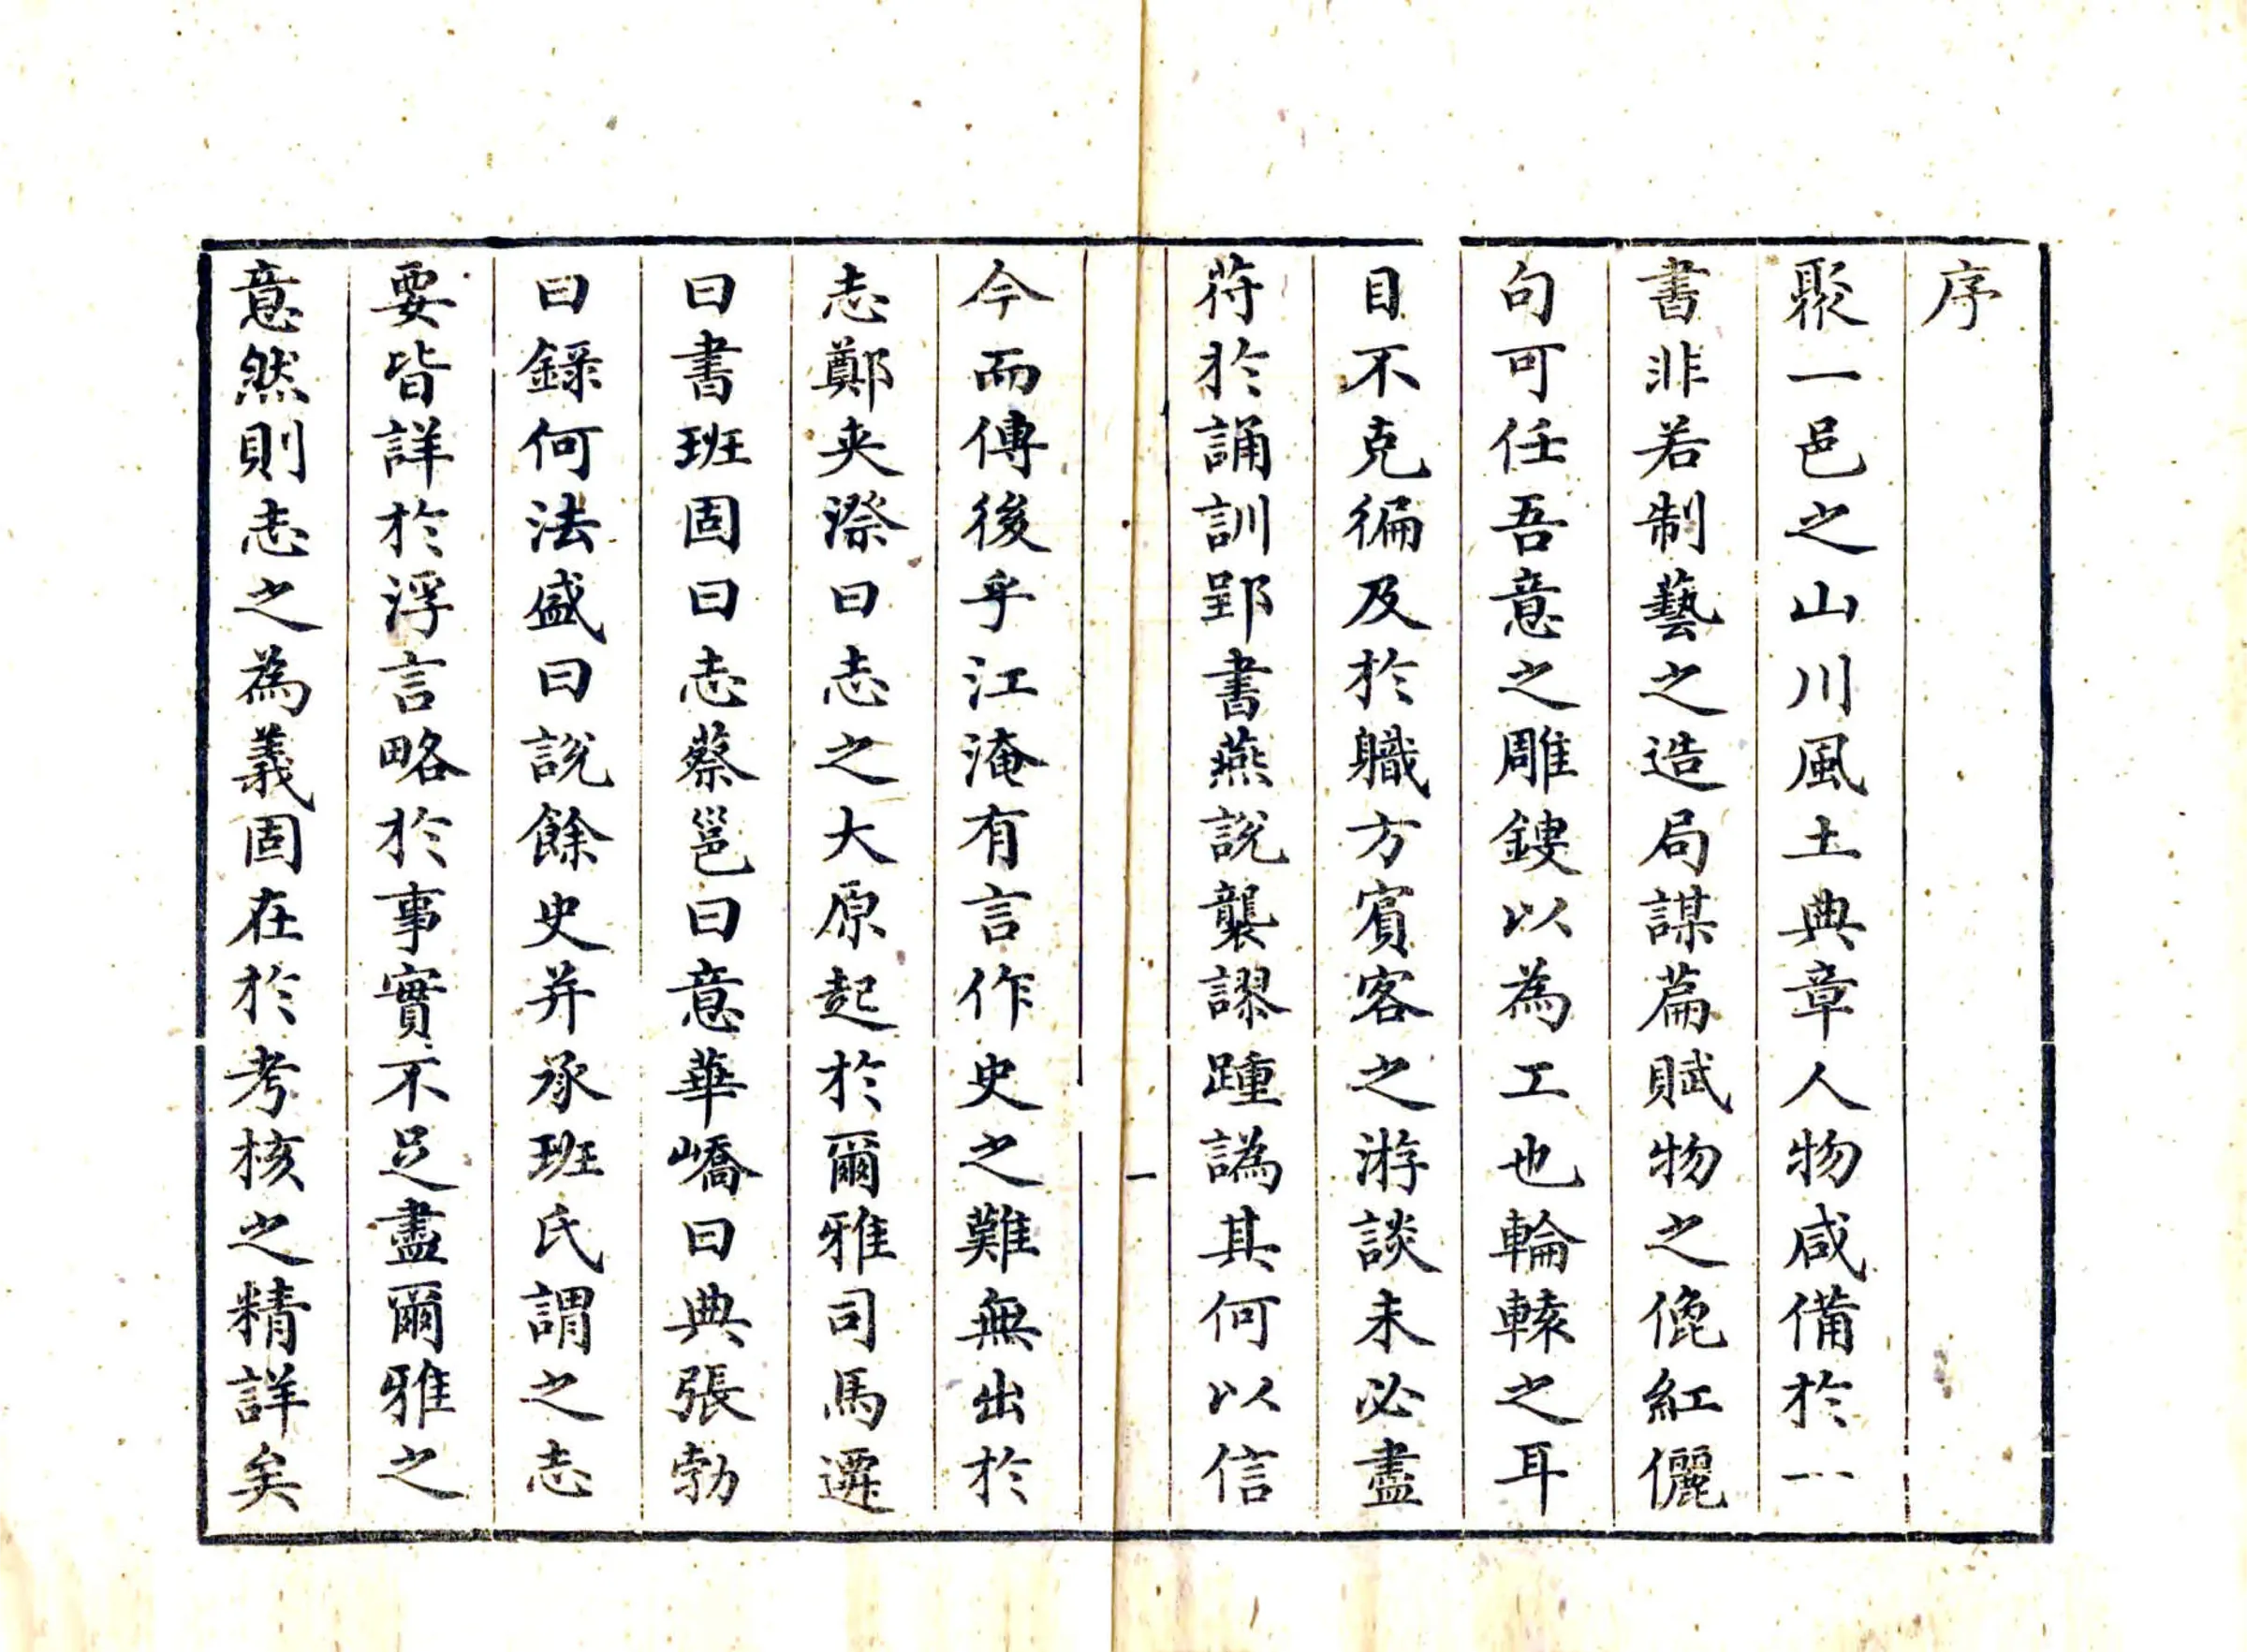 序
聚一邑之山川風土典章人物咸備於一
書非若制藝之造局謀篇賦物之俛紅儷
句可任吾意之雕鏤以為工也輪轅之耳
目不克徧及於職方賓客之游談未必盡
符於誦訓郢書燕說襲謬踵譌其何以信
一
今而傳後乎江淹有言作史之難無出於
志鄭夾漈曰志之大原起於爾雅司馬遷
曰書班固曰志蔡邕曰意華嶠曰典張勃
曰錄何法盛曰說餘史并承班氏謂之志
要皆詳於浮言略於事實不足盡爾雅之
意然則志之為義固在於考核之精詳矣